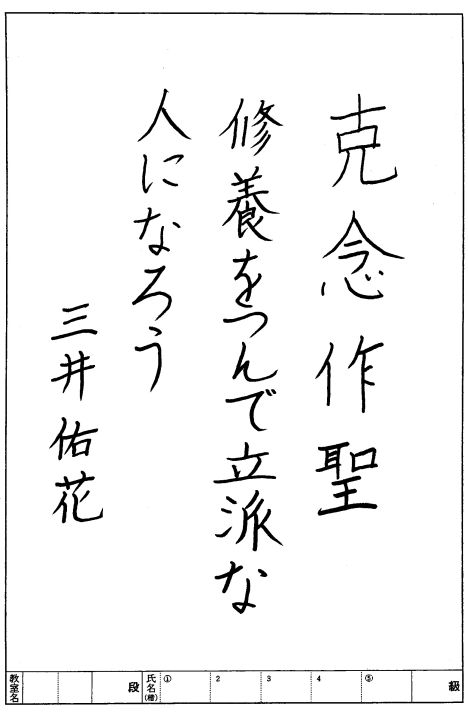 克念作聖
修養をつんで立派な
人になろう
三井佑花
教室名 段 氏名(種) ① 2 3 4 ⑤ 級